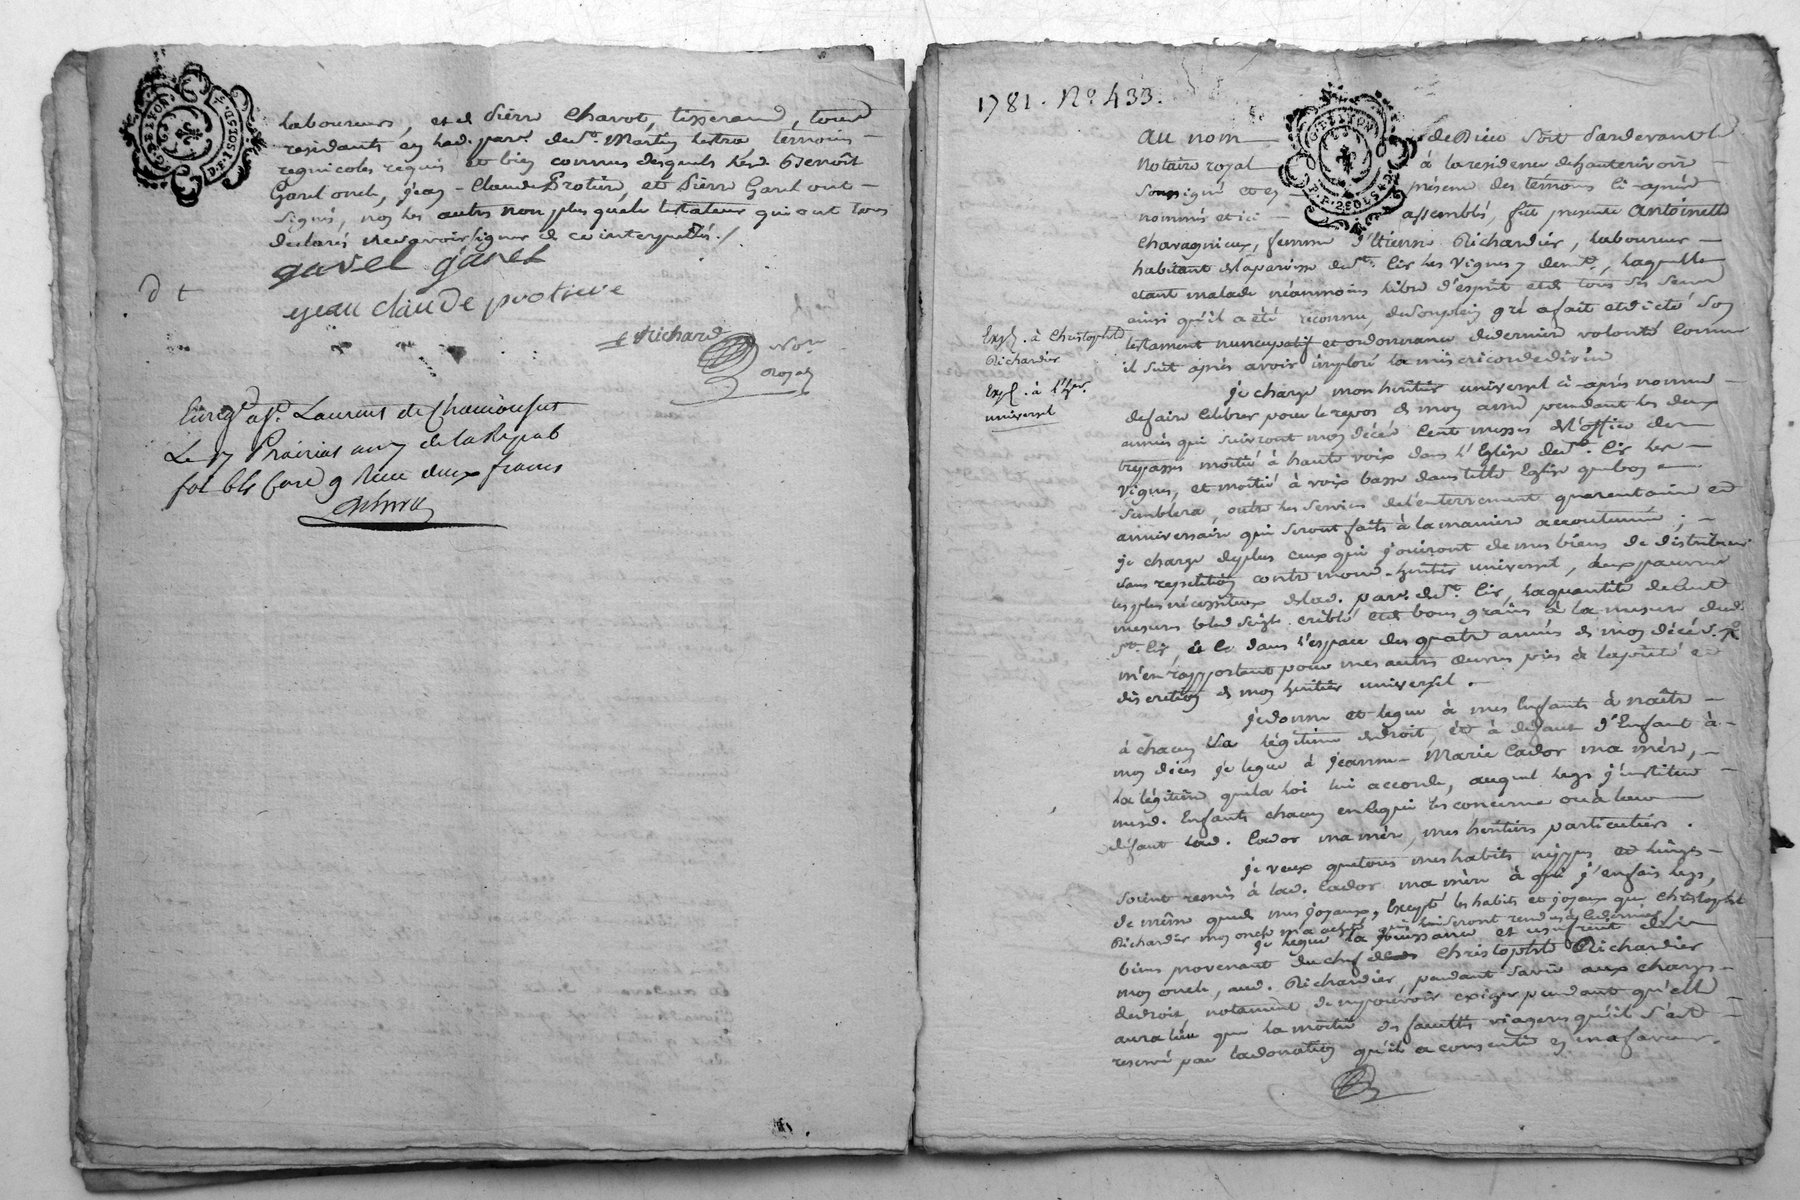 laboureurs, et d Pierre Charvot, tisserand, tous
residants en lad. par. de St. Martin Lestra temoins
regnicoles requis et bien connus desquels led. Benoît
Garel oncle, jean-Claude Protière, et Pierre Garel ont
signé, non les autres non plus que le testateur qui ont tous
declarés ne savoir signer de ce interpellés./.
garel garel
jean claude protiere
Richard
Nore
Royal
Laurens de Chamousset
Le 17 Prairial an 7 de la Répub
fol bls Case 9 Recu deux francs
G. DE LYON
1781. No 433.
G. DE LYON
P. P. 2 SOLS
au nom de Dieu soit Pardevant le
Notaire royal à la residence de hauterivoire
soussigné et en présence des témoins ci-après
nommés et ici assemblés, fût presente Antoinette
Chavagnieux, femme d'Etienne Richardier, laboureur
habitant de la paroisse de St. Cir les Vignes, laquelle
etant malade néanmoins libre d'esprit et de tous ses sens
ainsi qu'il a été reconnu, de son plein gré a fait et dicté son
testament nuncupatif et ordonnance de derniere volonté comme
il suit après avoir imploré la misericorde divine
Exp. à Christophle
Richardier
Exp. à l'her.
universel
je charge mon heritier universel ci-après nommé
de faire célébrer pour le repos de mon ame pendant les deux
années qui suivront mon décés cent messes de l'office des
trepassés moitié à haute voix dans l'Eglise de St. Cir les
Vignes, et moitié à voix basse dans telle Eglise que bon
semblera, outre les services de l'enterrement quarentaine et
anniversaire qui seront faits à la maniere accoutumée;
je charge de plus ceux qui jouiront de mes biens de distribuer
sans repetition contre mond. heritier universel, aux pauvres
les plus nécessiteux de lad. par. de St. Cir, la quantité de cent
mesures bled seigle criblé et de bons grains à la mesure dud.
St. Cir, et ce dans l'espace de quatre années de mon décés.
m'en rapportant pour mes autres œuvres pies à la piété et
discretion de mon heritier universel.
je donne et legue à mes Enfants à naître
à chacun la légitime de droit, et à défaut d'Enfant à
mon décés je legue à jeanne-Marie Cador ma mère,
la légitime que la loi lui accorde, auquel legs j'institue
mesd. Enfants chacun en ce qui les concerne ou à leur
défaut lad. Cador ma mère, mes heritiers particuliers.
je veux que tous mes habits nippes et linges
soient remis à lad. Cador ma mère à qui j'en fais legs,
de même que de mes joyaux, Excepté les habits et joyaux que Christophle
Richardier mon oncle m'a acheté qui lui seront rendus
je legue la jouissance et usufruit des
biens provenant du chef de Christophle Richardier
mon oncle, aud. Richardier, pendant sa vie aux charges
de droit, notament de ne pouvoir exiger pendant qu'elle
aura lieu que la moitié des facultés viageres qu'il s'est
reservé par la donation qu'il a consentie en ma faveur.